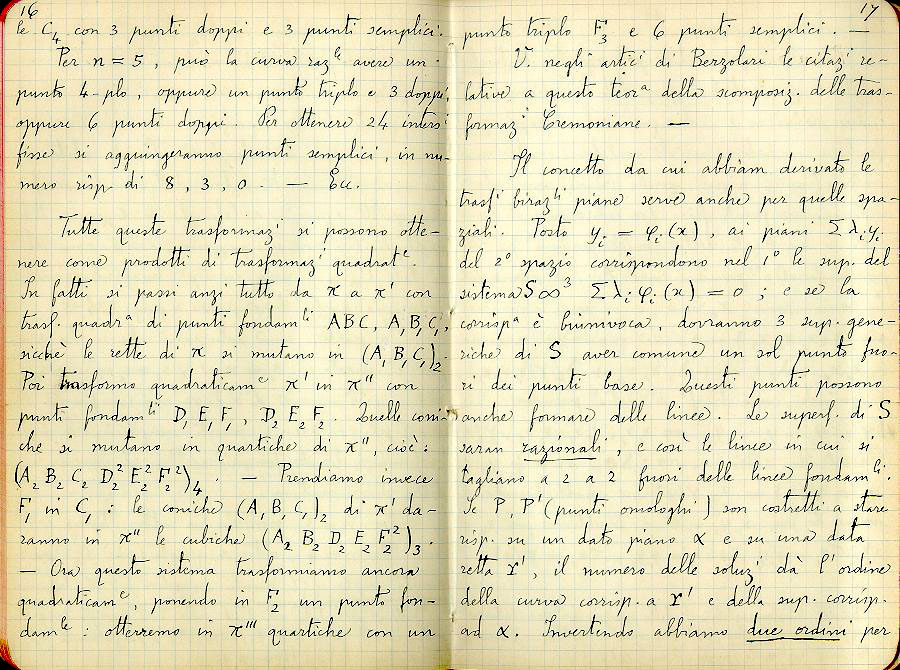 16
le C₄ con 3 punti doppi e 3 punti semplici.
Per n = 5, può la curva razˡᵉ avere un
punto 4-plo, oppure un punto triplo e 3 doppi,
oppure 6 punti doppi. Per ottenere 24 intersⁱ
fisse si aggiungeranno punti semplici, in nu-
mero risp. di 8, 3, 0. — Ecc.
Tutte queste trasformazⁱ si possono otte-
nere come prodotti di trasformazⁱ quadratᵉ.
In fatti si passi anzi tutto da π a π' con
trasf. quadrᵃ di punti fondamˡⁱ ABC, A₁B₁C₁,
sicchè le rette di π si mutano in (A₁B₁C₁)₂.
Poi trasformo quadraticamᵉ π' in π'' con
punti fondamˡⁱ D₁E₁F₁, D₂E₂F₂. Quelle coni-
che si mutano in quartiche di π'', cioè:
(A₂ B₂ C₂ D₂² E₂² F₂²)₄. — Prendiamo invece
F₁ in C₁: le coniche (A₁B₁C₁)₂ di π' da-
ranno in π'' le cubiche (A₂ B₂ D₂ E₂ F₂²)₃.
— Ora questo sistema trasformiamo ancora
quadraticamᵉ, ponendo in F₂ un punto fon-
damˡᵉ: otterremo in π''' quartiche con un
17
punto triplo F₃ e 6 punti semplici. —
V. negli articⁱ di Berzolari le citazⁱ re-
lative a questo teorᵃ della scomposiz. delle tras-
formazⁱ Cremoniane. —
Il concetto da cui abbiam derivato le
trasfⁱ birazˡⁱ piane serve anche per quelle spa-
ziali. Posto yᵢ = φᵢ(x), ai piani Σλᵢyᵢ
del 2° spazio corrispondono nel 1° le sup. del
sistema S ∞³ Σλᵢφᵢ(x) = 0; e se la
corrispᵃ è biunivoca, dovranno 3 sup. gene-
riche di S aver comune un sol punto fuo-
ri dei punti base. Questi punti possono
anche formare delle linee. Le superf. di S
saran razionali, e così le linee in cui si
tagliano a 2 a 2 fuori delle linee fondamˡⁱ.
Se P, P' (punti omologhi) son costretti a stare
risp. su un dato piano α e su una data
retta r', il numero delle soluzⁱ dà l'ordine
della curva corrisp. a r' e della sup. corrisp.
ad α. Invertendo abbiamo due ordini per